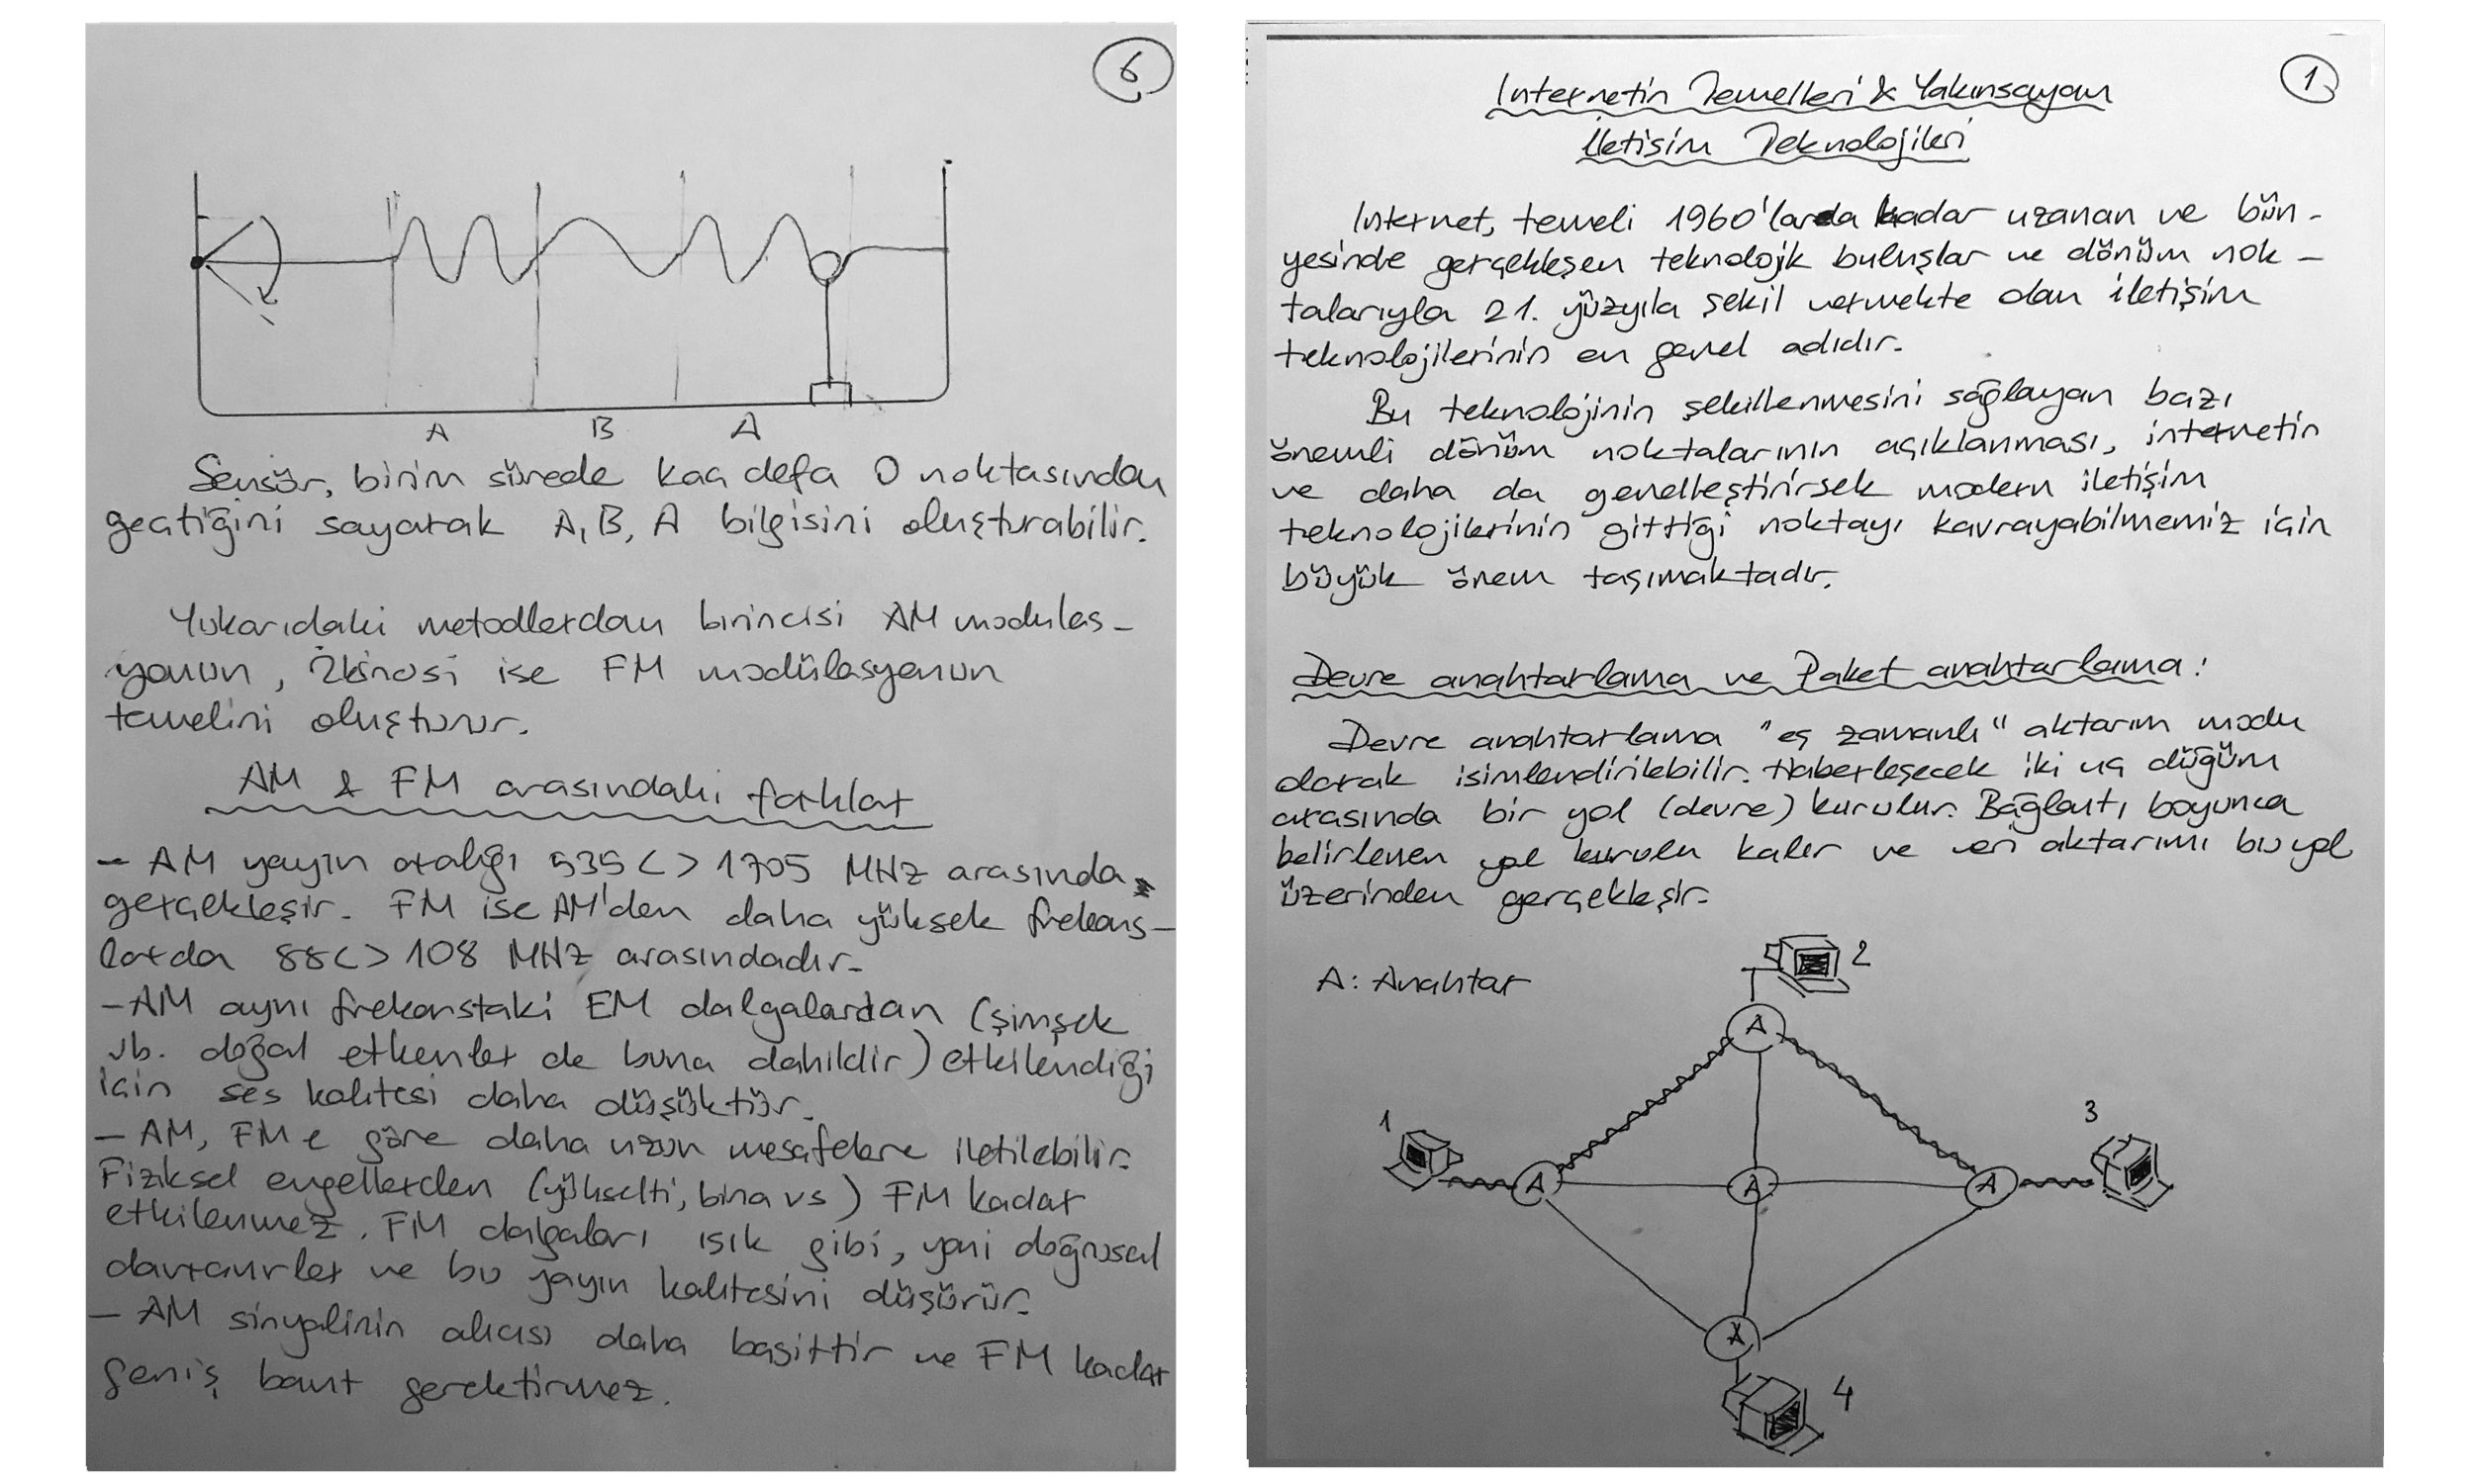 6
A
B
A
Sensör, birim sürede kaç defa 0 noktasından
geçtiğini sayarak A, B, A bilgisini oluşturabilir.
Yukarıdaki metodlerdan birincisi AM modulas-
yonun, İkincisi ise FM modülasyonun
temelini oluşturur.
AM & FM arasındaki farklar
- AM yayın aralığı 535 <> 1705 MHz arasında
gerçekleşir. FM ise AM'den daha yüksek frekans-
larda 88 <> 108 MHz arasındadır.
- AM aynı frekanstaki EM dalgalardan (şimşek
vb. doğal etkenler de buna dahildir) etkilendiği
için ses kalitesi daha düşüktür.
- AM, FM e göre daha uzun mesafelere iletilebilir.
Fiziksel engellerden (yükselti, bina vs) FM kadar
etkilenmez. FM dalgaları ışık gibi, yani doğrusal
davranırlar ve bu yayın kalitesini düşürür.
- AM sinyalinin alıcısı daha basittir ve FM kadar
geniş bant gerektirmez.
1
Internetin Temelleri & Yakınsayan
İletişim Teknolojileri
Internet, temeli 1960'lara kadar uzanan ve bün-
yesinde gerçekleşen teknolojik buluşlar ve dönüm nok-
talarıyla 21. yüzyıla şekil vermekte olan iletişim
teknolojilerinin en genel adıdır.
Bu teknolojinin şekillenmesini sağlayan bazı
önemli dönüm noktalarının açıklanması, internetin
ve daha da genelleştirirsek modern iletişim
teknolojilerinin gittiği noktayı kavrayabilmemiz için
büyük önem taşımaktadır.
Devre anahtarlama ve Paket anahtarlama:
Devre anahtarlama "eş zamanlı" aktarım modu
olarak isimlendirilebilir. Haberleşecek iki uç düğüm
arasında bir yol (devre) kurulur. Bağlantı boyunca
belirlenen yol kurulu kalır ve veri aktarımı bu yol
üzerinden gerçekleşir.
A: Anahtar
2
A
1
3
A
A
A
A
4